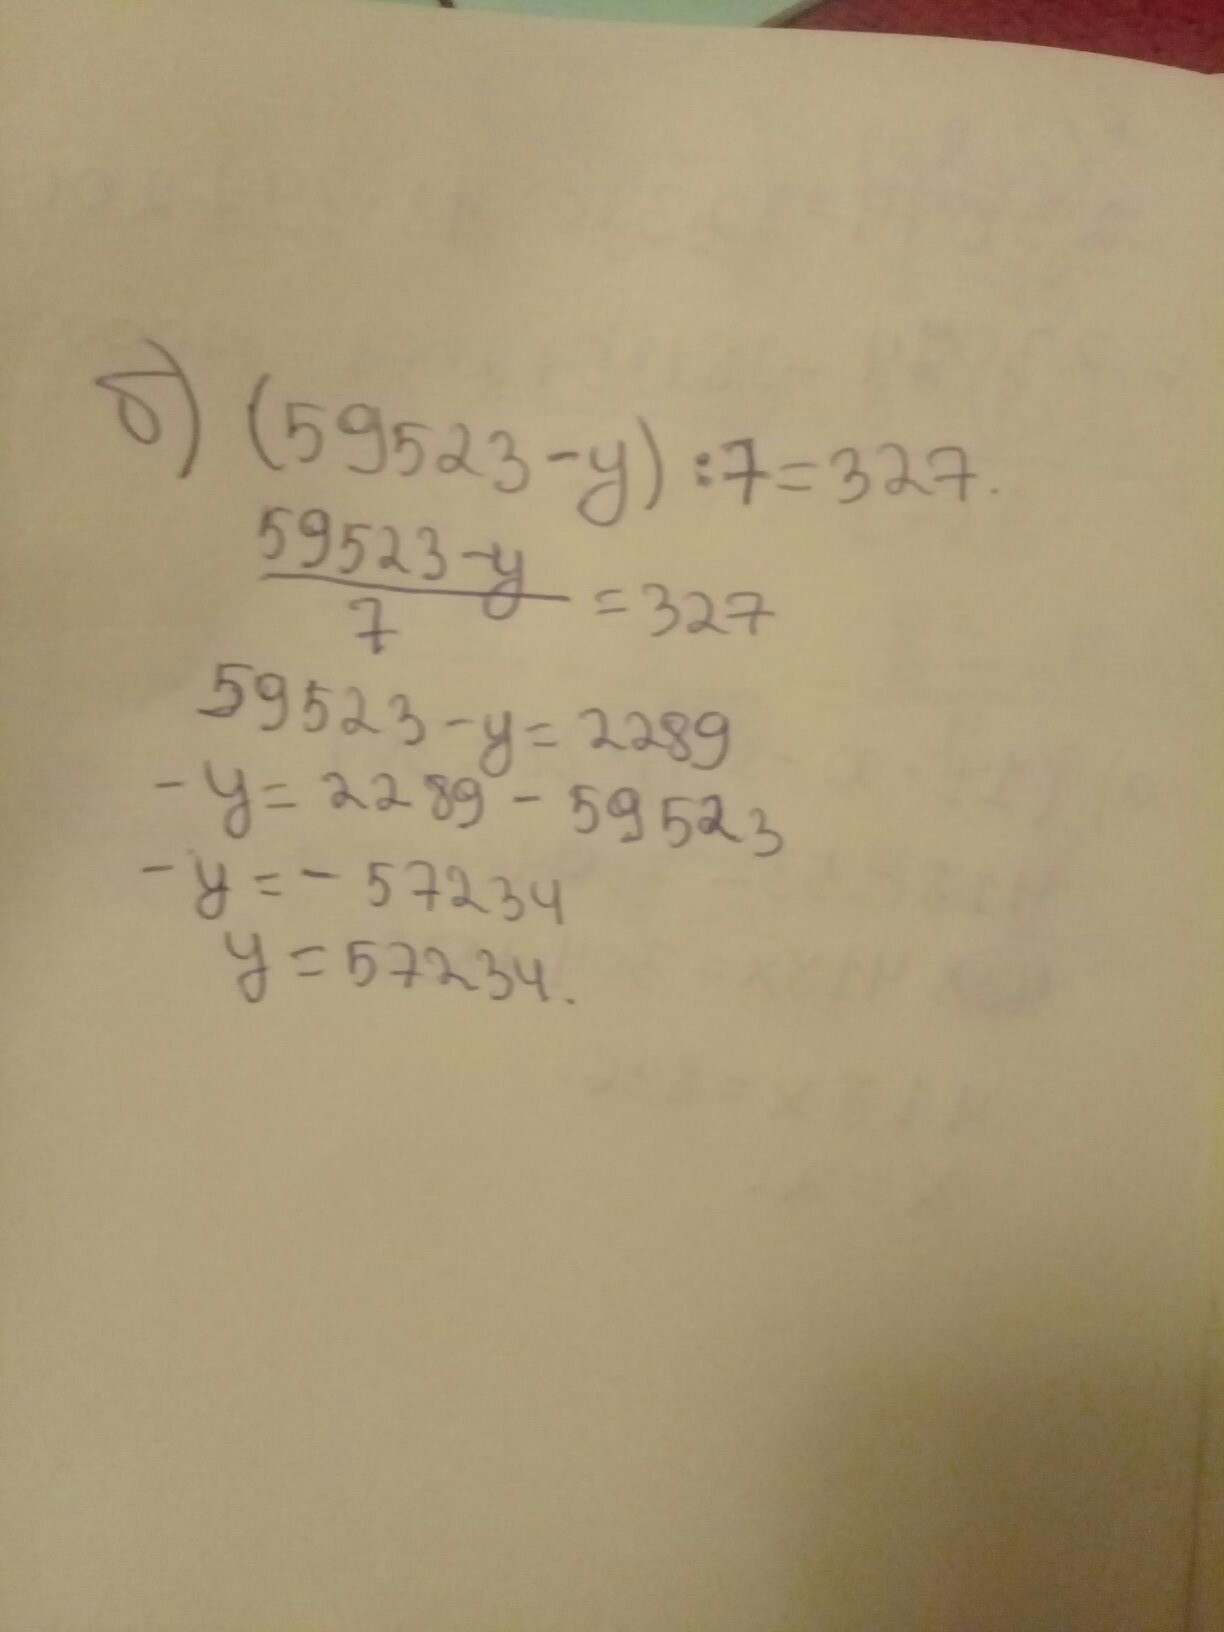 б) (59523-y):7=327.
59523-y
7
=327
59523-y=2289
-y=2289-59523
-y=-57234
y=57234.